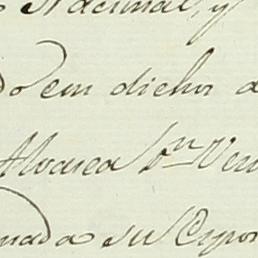 Nacional, y
do em dichos a
Alvarea bn Ven
nada su Espos